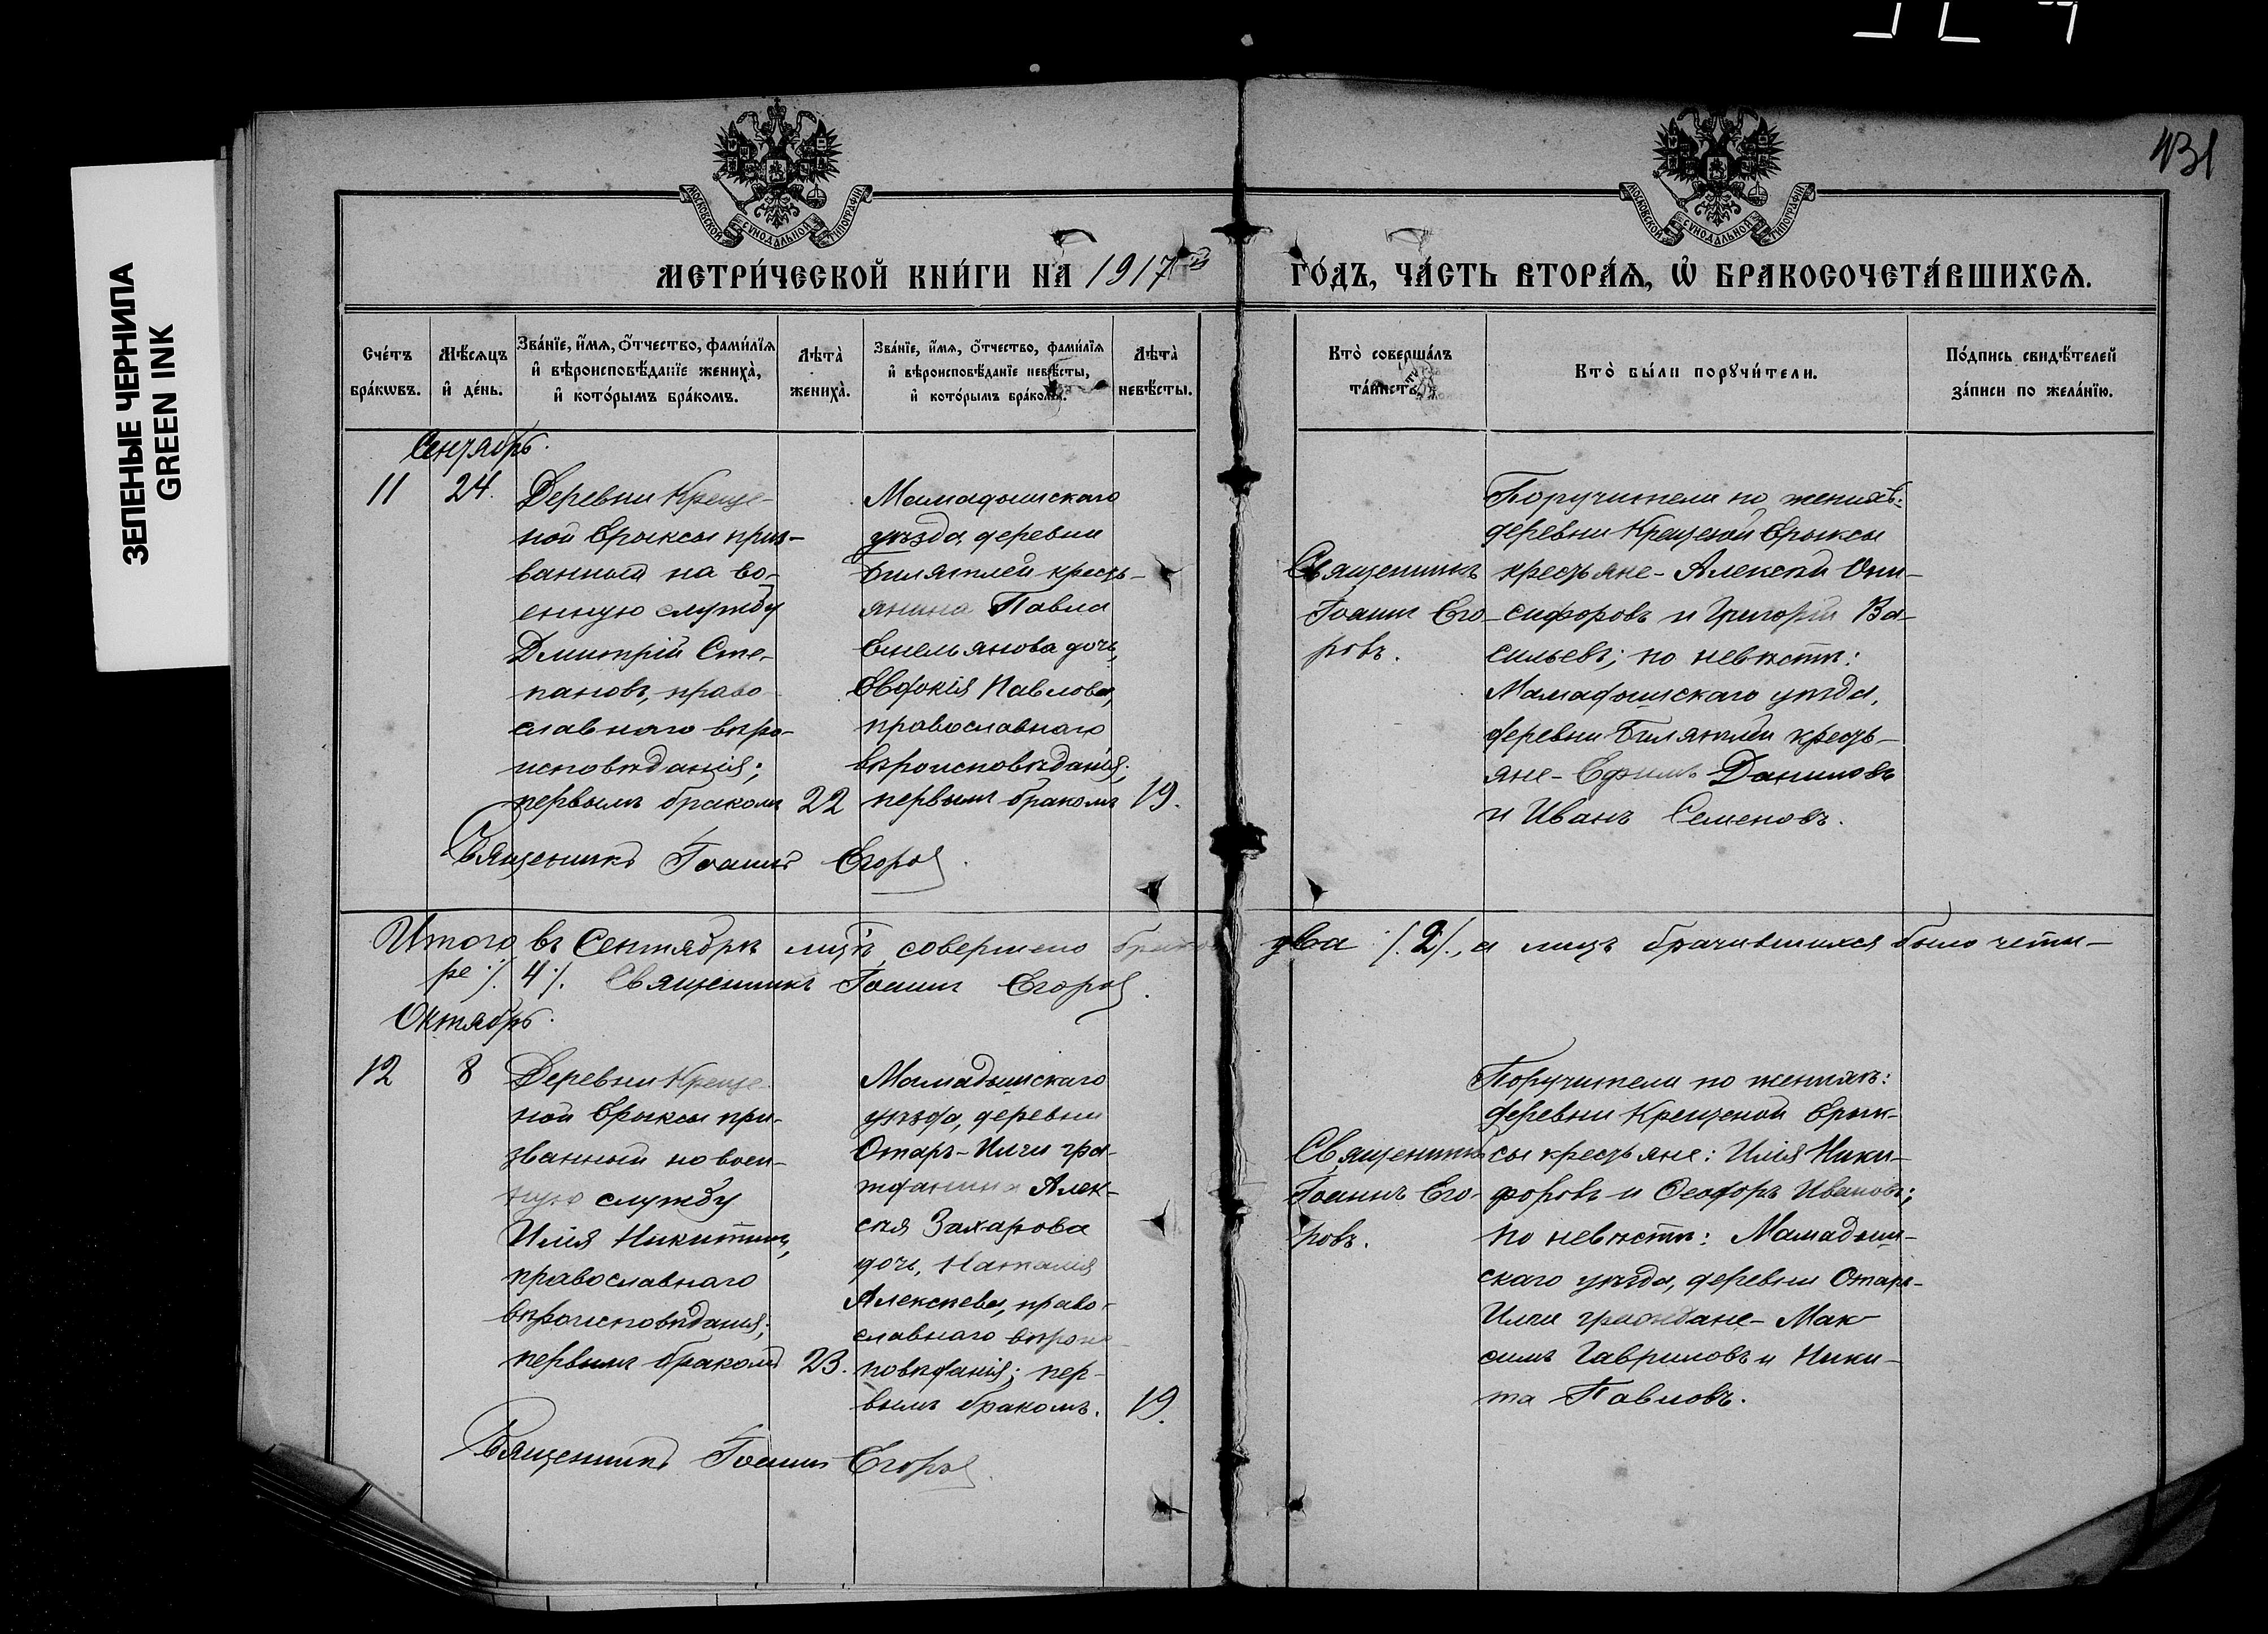 431
ЗЕЛЕНЫЕ ЧЕРНИЛА
GREEN INK
МОСКОВСКОЙ СѴНОДАЛЬНОЙ ТИПОГРАФІИ
МОСКОВСКОЙ СѴНОДАЛЬНОЙ ТИПОГРАФІИ
МЕТРИ́ЧЕСКОЙ КНИ́ГИ НА 1917й ГО́ДЪ, ЧА́СТЬ ВТОРА́Ѧ, Ѡ҆ БРАКОСОЧЕТА́ВШИХСѦ.
Сче́тъ бра́кѡвъ.
Мѣ́сяцъ и҆ де́нь.
Зва́нїе, и҆́мѧ, ѻ҆́тчество, фами́лїѧ и҆ вѣроисповѣ́данїе жениха̀, и҆ кото́рымъ бра́комъ.
Лѣта̀ жениха̀.
Зва́нїе, и҆́мѧ, ѻ҆́тчество, фами́лїѧ и҆ вѣроисповѣ́данїе невѣ́сты, и҆ кото́рымъ бра́комъ.
Лѣта̀ невѣ́сты.
Кто̀ соверша́лъ та́инств
Кто̀ бы́ли порꙋчи́тели.
По́дпись свидѣ́телей за́писи по жела́нїю.
Сентябрь.
11
24.
Деревни Креще-
ной Ерыксы приз-
ванный на во-
енную службу
Дмитрій Сте-
пановъ, право-
славнаго вѣро-
исповѣданія;
первымъ бракомъ
22
Мамадышскаго
уѣзда, деревни
Билятлей кресть-
янина Павла
Емельянова дочь,
Евдокія Павлова,
православнаго
вѣроисповѣданія;
первымъ бракомъ
19.
Священникъ
Іоаннъ Его-
ровъ.
Поручители по женихѣ:
деревни Крещеной Ерыксы
крестьяне - Алексѣй Они-
сифоровъ и Григорій Ва-
сильевъ; по невѣстѣ:
Мамадышскаго уѣзда,
деревни Билятлей кресть-
яне - Ефимъ Даниловъ
и Иванъ Семеновъ.
Священникъ Іоаннъ Егоровъ.
Итого въ Сентябрѣ мцѣ, совершено браковъ два /.2/., а лицъ брачившихся было четы-
ре /. 4 /. Священникъ Іоаннъ Егоровъ.
Октябрь.
12
8
Деревни Креще-
ной Ерыксы при-
званный на воен-
ную службу
Илія Никитинъ,
православнаго
вѣроисповѣданія;
первымъ бракомъ
23.
Мамадышскаго
уѣзда, деревни
Отаръ-Илги гра-
жданина Алек-
сѣя Захарова
дочь, Наталія
Алексѣева, право-
славнаго вѣрои
повѣданія; пер-
вымъ бракомъ.
19.
Священникъ
Іоаннъ Его-
ровъ.
Поручители по женихѣ:
деревни Крещеной Ерык-
сы крестьяне: Илія Ники-
форовъ и Ѳеодоръ Ивановъ;
по невѣстѣ: Мамадыш-
скаго уѣзда, деревни Отаръ-
Илги граждане - Мак-
симъ Гавриловъ и Ники-
та Павловъ.
Священникъ Іоаннъ Егоровъ